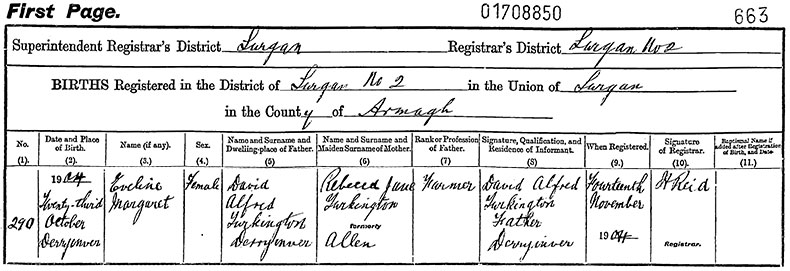 First Page. 01708850 663
Superintendent Registrar's District Lurgan Registrar's District Lurgan No 2
BIRTHS Registered in the District of Lurgan No 2 in the Union of Lurgan
in the County of Armagh
No. (1).
Date and Place of Birth. (2).
Name (if any). (3.)
Sex. (4.)
Name and Surname and Dwelling-place of Father. (5)
Name and Surname and Maiden Surname of Mother. (6)
Rank or Profession of Father. (7)
Signature, Qualification, and Residence of Informant. (8)
When Registered. (9.)
Signature of Registrar. (10.)
Baptismal Name if added after Registration of Birth, and Date. (11.)
290
1904
Twenty-third
October
Derryinver
Eveline
Margaret
Female
David
Alfred
Turkington
Derryinver
Rebecca Jane
Turkington
formerly
Allen
Farmer
David Alfred
Turkington
Father
Derryinver
Fourteenth
November
1904
H Reid
Registrar.